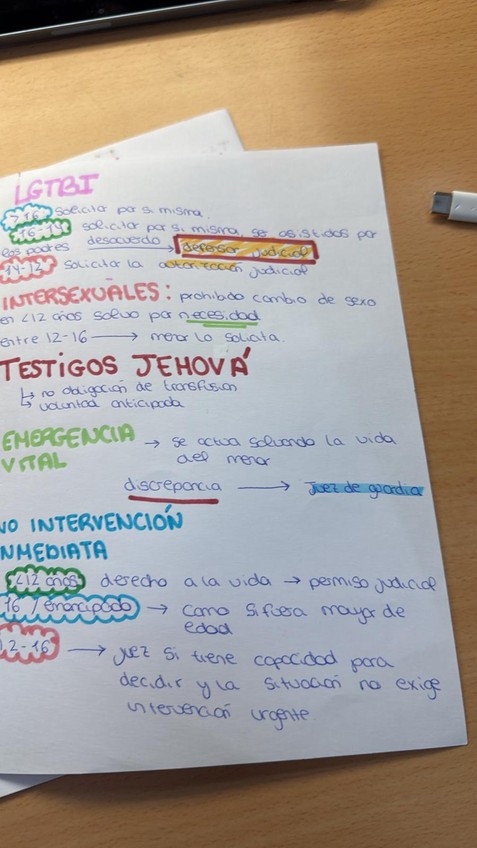 LGTBI
>16 solicitar por si misma.
16-14 solicitar por si misma, ser asistidos por
los padres desacuerdo → defensor judicial
14-12 solicitar la autorización judicial
INTERSEXUALES: prohibido cambio de sexo
en <12 años salvo por necesidad
entre 12-16 → menor lo solicita.
TESTIGOS JEHOVÁ
↳ no obligación de transfusión
↳ voluntad anticipada
EMERGENCIA → se actua salvando la vida
VITAL del menor
discrepancia → Juez de guardia
NO INTERVENCIÓN
INMEDIATA
<12 años derecho a la vida → permiso judicial
16 / emancipado → como si fuera mayor de
edad
12-16 → juez si tiene capacidad para
decidir y la situación no exige
intervención urgente.